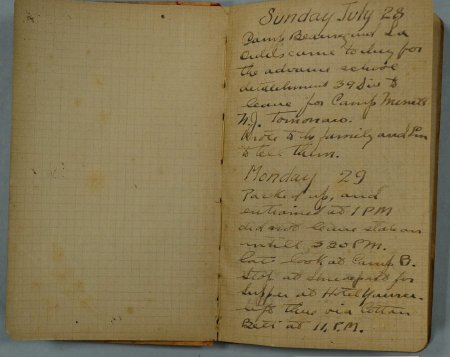 Sunday July 28
Camp Beauregard La
Orders came to day for
the advance school
detachment 39 Div to
leave for Camp Merritt
N.J. Tomorrow.
Wrote to the family and
to tell them.
Monday 29
Packed up, and
entrained at 1 PM
did not leave station
untill 5 30 PM.
last look at Camp B.
Stop at Shreveport for
supper at Hotel
left there via Cotton
Belt at 11 P.M.